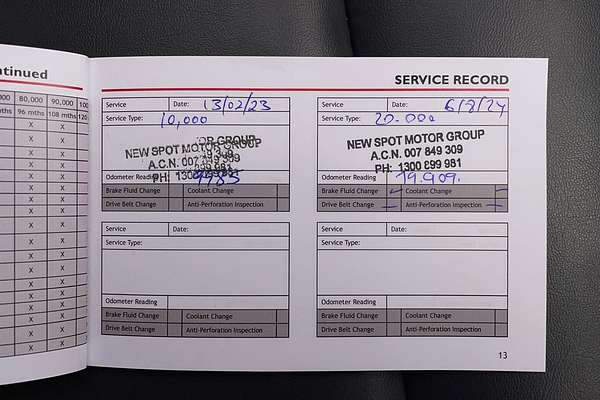 ntinued
SERVICE RECORD
000 80,000 90,000 100
ths 96 mths 108 mths 120
X X
X X
X X
X X
X X
X X
X X
X X
X X
X
X
X X
X X
X X
X X
X X
Service Date: 13/02/23
Service Type: 10,000
NEW SPOT MOTOR GROUP
A.C.N. 007 849 309
PH: 1300 899 981
Odometer Reading 9785
Brake Fluid Change Coolant Change
Drive Belt Change Anti-Perforation Inspection
Service Date: 6/8/24
Service Type: 20.000
NEW SPOT MOTOR GROUP
A.C.N. 007 849 309
PH: 1300 899 981
Odometer Reading 19.909.
Brake Fluid Change Coolant Change
Drive Belt Change Anti-Perforation Inspection
Service Date:
Service Type:
Odometer Reading
Brake Fluid Change Coolant Change
Drive Belt Change Anti-Perforation Inspection
Service Date:
Service Type:
Odometer Reading
Brake Fluid Change Coolant Change
Drive Belt Change Anti-Perforation Inspection
13